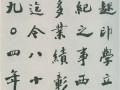 印學立
紀之事
多業績彰
迄今八十
九〇四年